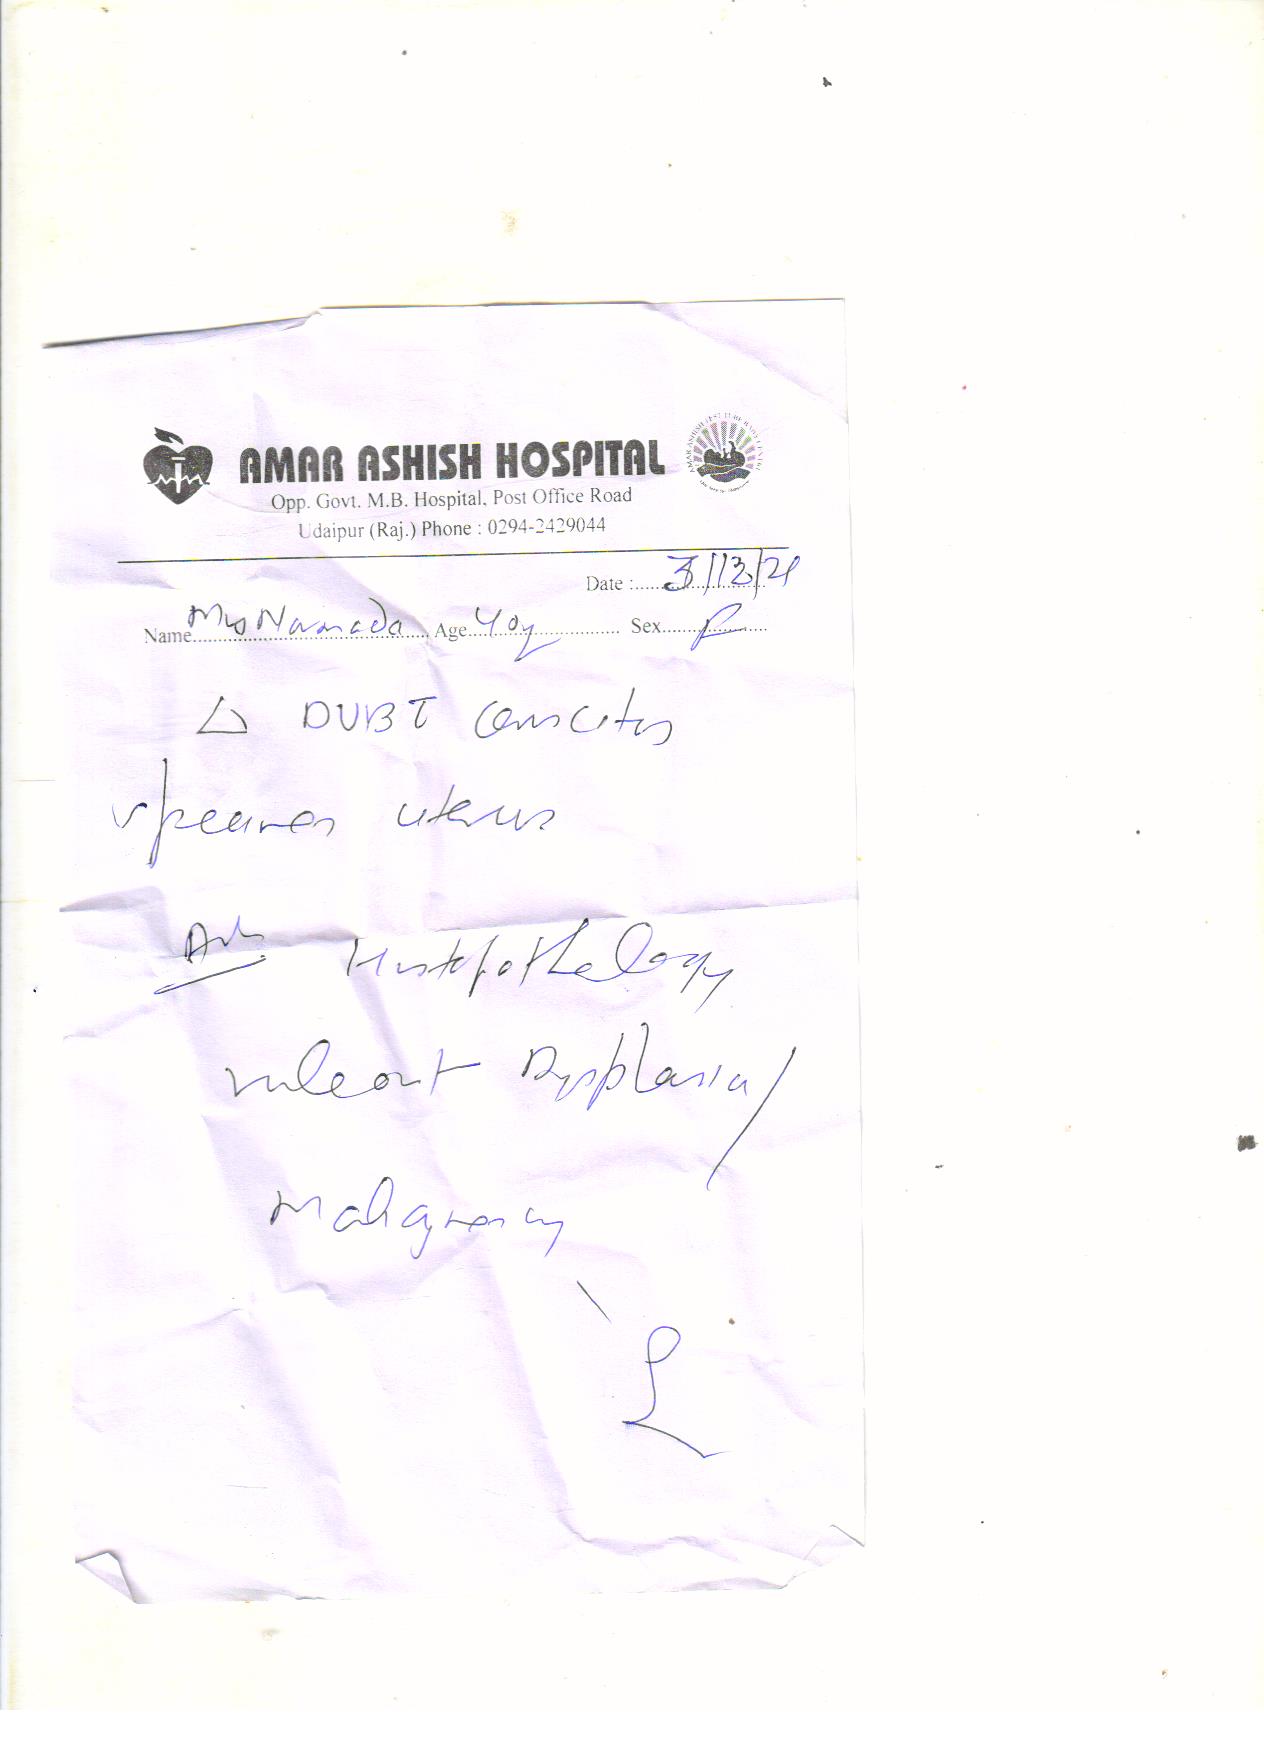 AMAR ASHISH HOSPITAL
Opp. Govt. M.B. Hospital, Post Office Road
Udaipur (Raj.) Phone : 0294-2429044
Date :
Name Mrs Narmada Age 40y Sex F
△ DUB
specimen uterus
Adv Histopathology
ruleout Dysplasia/
Malignancy